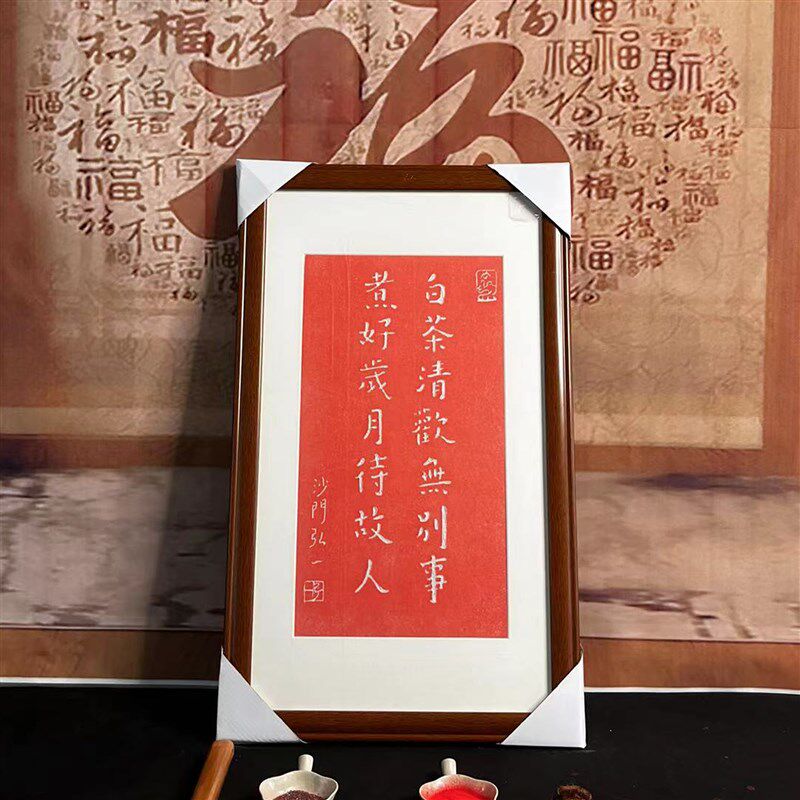 白茶清歡無別事
煮好歲月待故人
沙門弘一
福